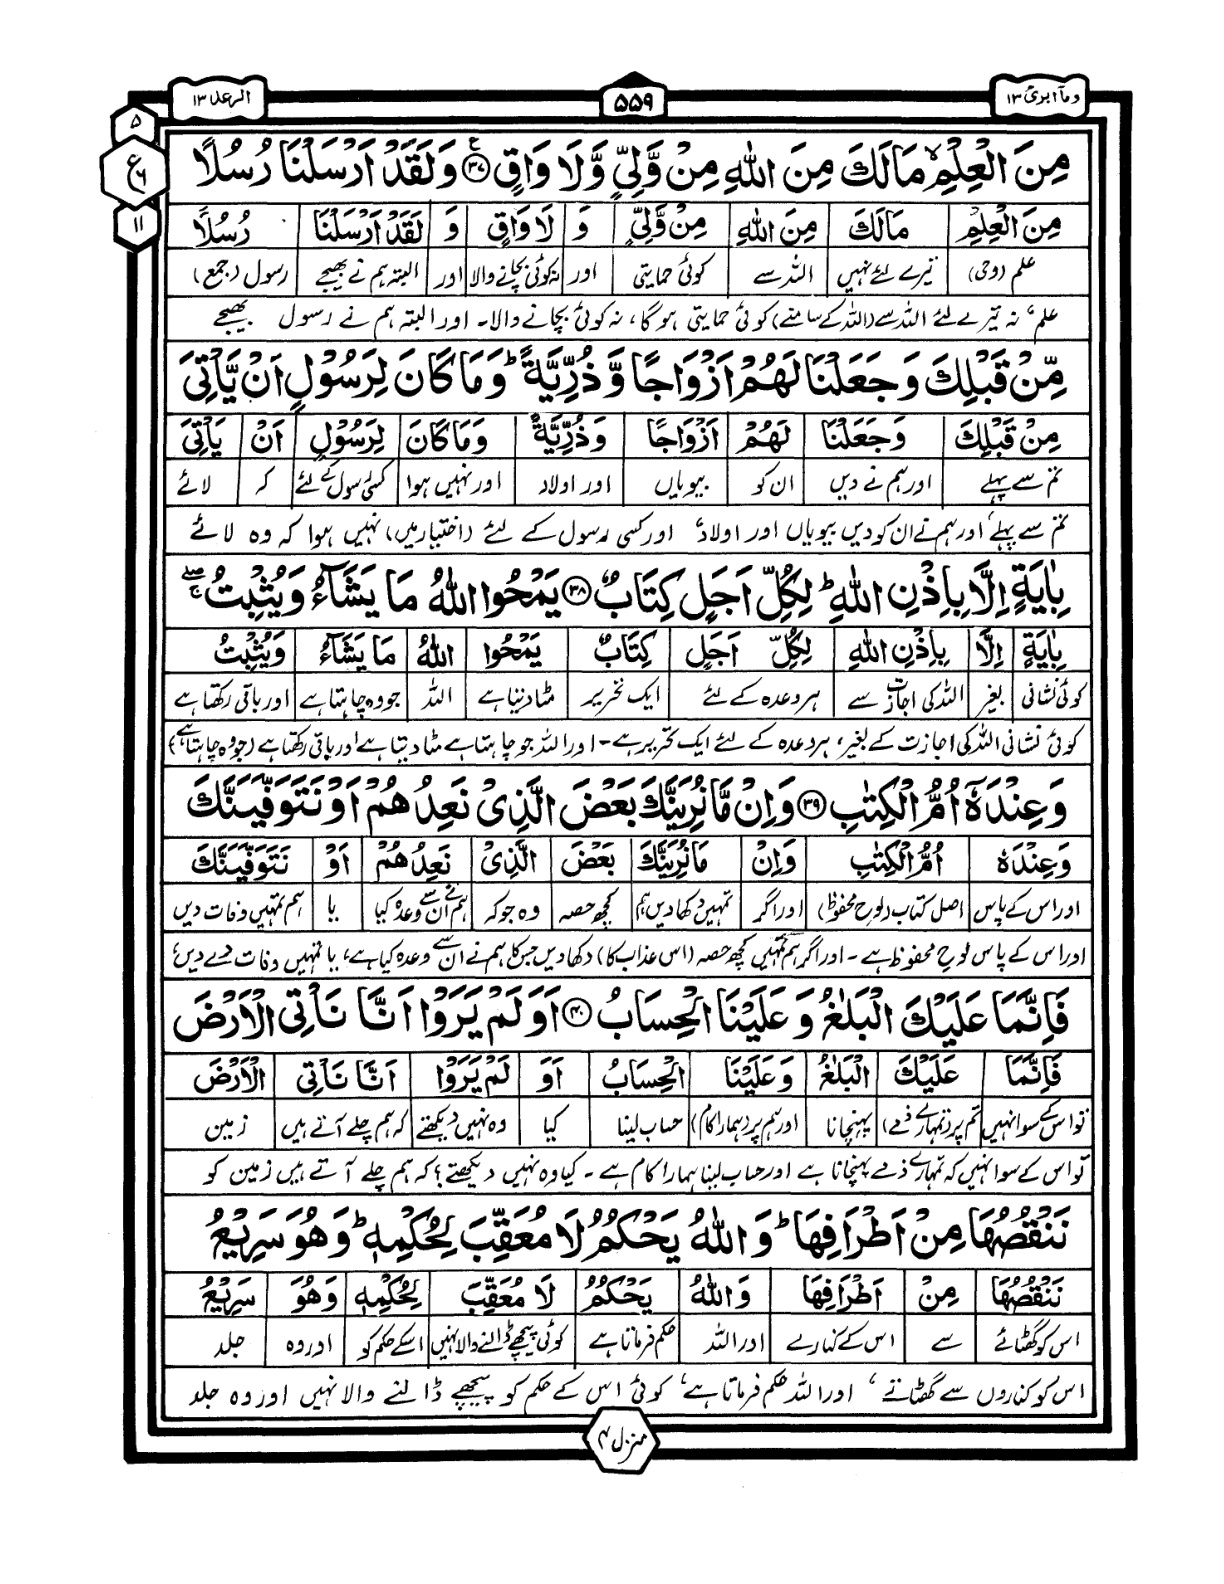 وما ابرئ ۱۳
۵۵۹
الرعد ۱۳
۵
ع
۶
۱۱
مِنَ الْعِلْمِ ۙ مَا لَكَ مِنَ اللّٰهِ مِنْ وَّلِيٍّ وَّلَا وَاقٍ ۟ ﴿۳۷﴾ وَلَقَدْ اَرْسَلْنَا رُسُلًا
مِنَ الْعِلْمِ مَا لَكَ مِنَ اللّٰهِ مِنْ وَّلِيٍّ وَ لَا وَاقٍ وَ لَقَدْ اَرْسَلْنَا رُسُلًا
علم (وحی) تیرے لئے نہیں اللہ سے کوئی حمایتی اور نہ کوئی بچانے والا اور البتہ ہم نے بھیجے رسول (جمع)
علم، نہ تیرے لئے اللہ سے (اللہ کے سامنے) کوئی حمایتی ہوگا، نہ کوئی بچانے والا۔ اور البتہ ہم نے رسول بھیجے
مِّنْ قَبْلِكَ وَجَعَلْنَا لَهُمْ اَزْوَاجًا وَّذُرِّيَّةً ؕ وَمَا كَانَ لِرَسُوْلٍ اَنْ يَّاْتِيَ
مِنْ قَبْلِكَ وَجَعَلْنَا لَهُمْ اَزْوَاجًا وَذُرِّيَّةً وَمَا كَانَ لِرَسُوْلٍ اَنْ يَاْتِيَ
تم سے پہلے اور ہم نے دیں ان کو بیویاں اور اولاد اور نہیں ہوا کسی رسول کے لئے کہ لائے
تم سے پہلے، اور ہم نے ان کو دیں بیویاں اور اولاد، اور کسی رسول کے لئے (اختیار میں) نہیں ہوا کہ وہ لائے
بِاٰيَةٍ اِلَّا بِاِذْنِ اللّٰهِ ؕ لِكُلِّ اَجَلٍ كِتَابٌ ﴿۳۸﴾ يَمْحُوا اللّٰهُ مَا يَشَآءُ وَيُثْبِتُ ۖۚ
بِاٰيَةٍ اِلَّا بِاِذْنِ اللّٰهِ لِكُلِّ اَجَلٍ كِتَابٌ يَمْحُوا اللّٰهُ مَا يَشَآءُ وَيُثْبِتُ
کوئی نشانی بغیر اللہ کی اجازت سے ہر وعدہ کے لئے ایک تحریر مٹا دیتا ہے اللہ جو وہ چاہتا ہے اور باقی رکھتا ہے
کوئی نشانی اللہ کی اجازت کے بغیر، ہر وعدہ کے لئے ایک تحریر ہے۔ اور اللہ جو چاہتا ہے مٹا دیتا ہے اور باقی رکھتا ہے (جو وہ چاہتا ہے)
وَعِنْدَهٗٓ اُمُّ الْكِتٰبِ ﴿۳۹﴾ وَاِنْ مَّا نُرِيَنَّكَ بَعْضَ الَّذِيْ نَعِدُهُمْ اَوْ نَتَوَفَّيَنَّكَ
وَعِنْدَهٗ اُمُّ الْكِتٰبِ وَاِنْ مَا نُرِيَنَّكَ بَعْضَ الَّذِيْ نَعِدُهُمْ اَوْ نَتَوَفَّيَنَّكَ
اور اس کے پاس اصل کتاب (لوح محفوظ) اور اگر تمہیں دکھا دیں ہم کچھ حصہ وہ جو کہ ہم نے ان سے وعدہ کیا یا ہم تمہیں وفات دیں
اور اس کے پاس لوحِ محفوظ ہے۔ اور اگر ہم تمہیں کچھ حصہ (اس عذاب کا) دکھا دیں جس کا ہم نے ان سے وعدہ کیا ہے، یا تمہیں وفات دے دیں،
فَاِنَّمَا عَلَيْكَ الْبَلٰغُ وَعَلَيْنَا الْحِسَابُ ﴿۴۰﴾ اَوَلَمْ يَرَوْا اَنَّا نَاْتِي الْاَرْضَ
فَاِنَّمَا عَلَيْكَ الْبَلٰغُ وَعَلَيْنَا الْحِسَابُ اَوَ لَمْ يَرَوْا اَنَّا نَاْتِي الْاَرْضَ
تو اس کے سوا نہیں تم پر (تمہارے ذمے) پہنچانا اور ہم پر (ہمارا کام) حساب لینا کیا وہ نہیں دیکھتے کہ ہم چلے آتے ہیں زمین
تو اس کے سوا نہیں کہ تمہارے ذمے پہنچانا ہے اور حساب لینا ہمارا کام ہے۔ کیا وہ نہیں دیکھتے؟ کہ ہم چلے آتے ہیں زمین کو
نَنْقُصُهَا مِنْ اَطْرَافِهَا ؕ وَاللّٰهُ يَحْكُمُ لَا مُعَقِّبَ لِحُكْمِهٖ ؕ وَهُوَ سَرِيْعُ
نَنْقُصُهَا مِنْ اَطْرَافِهَا وَاللّٰهُ يَحْكُمُ لَا مُعَقِّبَ لِحُكْمِهٖ وَهُوَ سَرِيْعُ
اس کو گھٹائے سے اس کے کنارے اور اللہ حکم فرماتا ہے کوئی پیچھے ڈالنے والا نہیں اسکے حکم کو اور وہ جلد
اس کو کناروں سے گھٹاتے، اور اللہ حکم فرماتا ہے، کوئی اس کے حکم کو پیچھے ڈالنے والا نہیں اور وہ جلد
منزل ۳